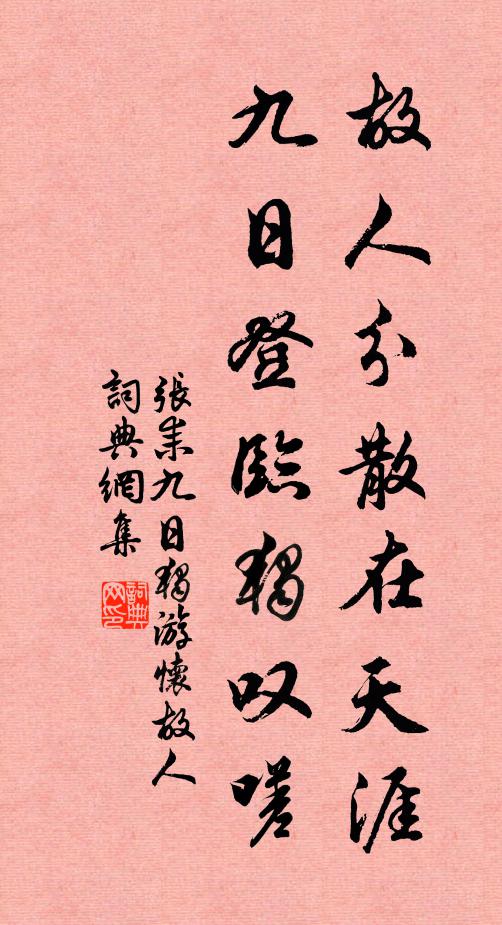 故人分散在天涯
九日登臨獨叹嗟
張耒九日獨游懷故人
詞典網集
詞典
网印